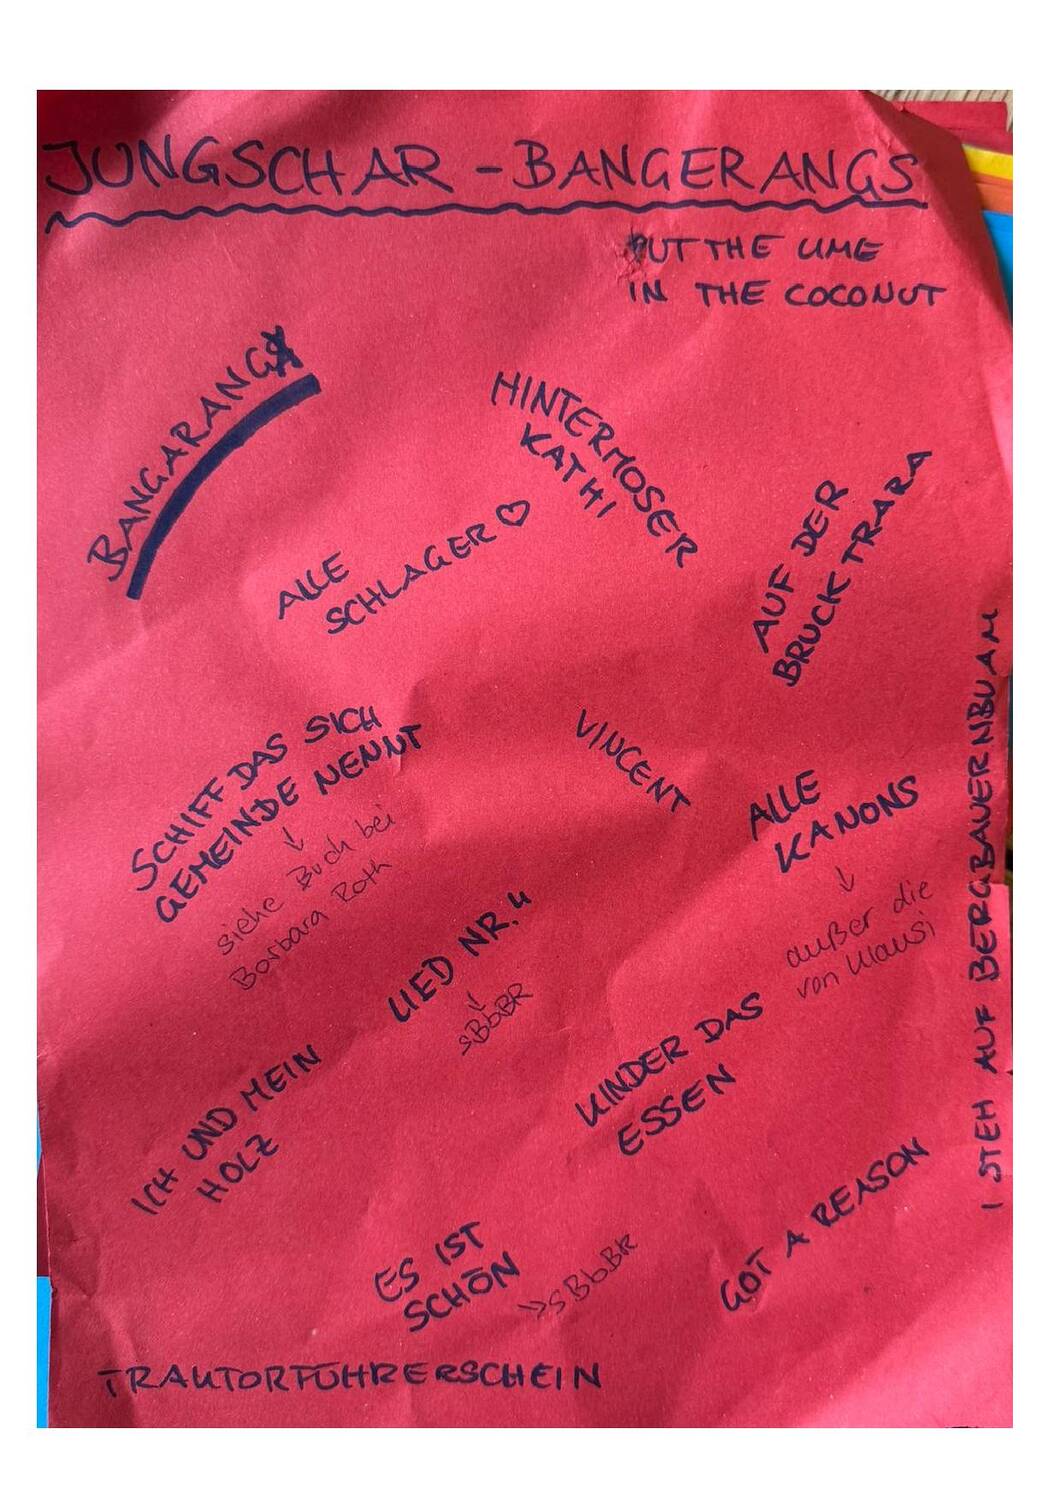 JUNGSCHAR - BANGERANGS
PUT THE LIME
IN THE COCONUT
BANGARANG
HINTERMOSER
KATHI
ALLE
SCHLAGER ♡
AUF DER
BRUCK TRARA
SCHIFF DAS SICH
GEMEINDE NENNT
↓
siehe Buch bei
Barbara Roth
VINCENT
ALLE
KANONS
↓
außer die
von Klausi
I STEH AUF BERGBAUERNBUAM
LIED NR. 4
↓
sBbBR
KINDER DAS
ESSEN
ICH UND MEIN
HOLZ
GOT A REASON
ES IST
SCHÖN
→ sBbBR
TRAKTORFÜHRERSCHEIN